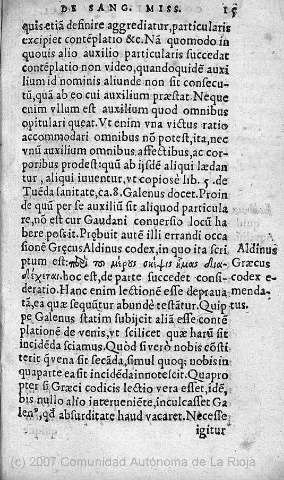 DE SANG. MISS. 15
quis etiã definire aggrediatur, particularis
excipiet contẽplatio &c. Nã quomodo in
quouis alio auxilio particularis succedat
contẽplatio non video, quandoquidẽ auxi
lium id nominis aliunde non sit consecu
tũ, quã ab eo cui auxilium præstat. Neque
enim vllum est auxilium quod omnibus
opitulari queat. Vt enim vna victus ratio
accommodari omnibus nõ potest, ita, nec
vnũ auxilium omnibus affectibus, ac cor
poribus prodest: quũ ab ijsdẽ aliqui lædan
tur, aliqui iuuentur, vt copiosè lib. 5. de
Tuẽda sanitate, ca. 8. Galenus docet. Proin
de quũ per se auxiliũ sit aliquod particula
re, nõ est cur Gaudani conuersio locũ ha
bere possit. Prębuit autẽ illi errandi occa
sionẽ Gręcus Aldinus codex, in quo ita scri
ptum est:
hoc est, de parte succedet consi-
deratio. Hanc enim lectionẽ esse depraua
tã, ea quæ sequũtur abundè testãtur. Quip
pe Galenus statim subijcit aliã esse contẽ
plationẽ de venis, vt scilicet quæ harũ sit
incidẽda sciamus. Quòd si verò nobis cõsti
terit qvẽna sit secãda, simul quoq; nobis in
qua parte ea sit incidẽda innotescit. Quapro
pter si Græci codicis lectio vera esset, idẽ,
bis nullo alio interueniẽte, inculcasset Ga
lenꝰ, qđ absurditate haud vacaret. Necesse
igitur
Aldinus
Græcus
codex e-
menda-
tus.
(c) 2007 Comunidad Autónoma de La Rioja